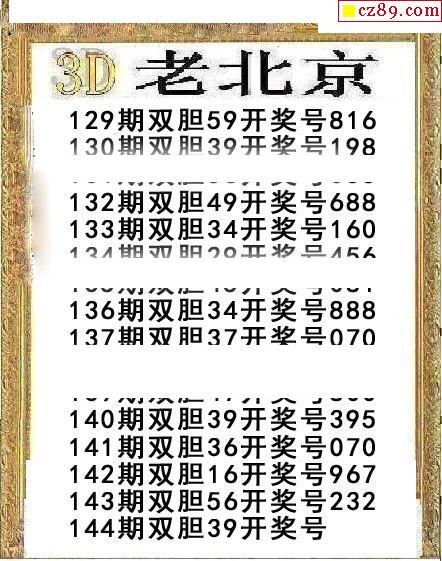 cz89.com
3D 老北京
129期双胆59开奖号816
130期双胆39开奖号198
132期双胆49开奖号688
133期双胆34开奖号160
134期双胆29开奖号456
136期双胆34开奖号888
137期双胆37开奖号070
140期双胆39开奖号395
141期双胆36开奖号070
142期双胆16开奖号967
143期双胆56开奖号232
144期双胆39开奖号